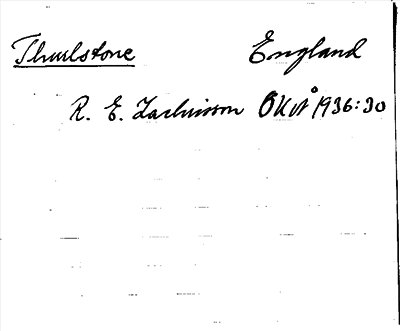 Thurlstone England
R. E. Zachrisson ÖKvÅ 1936:30